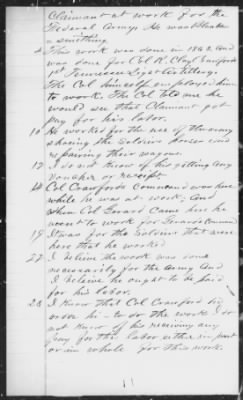 Claimant at work for the
Federal Army. He was
something
4 This work was done in 1863, and
was done for Col R. Clay Crawfords
1st Tennessee Light Artillery.
The Col himself employed him
to work. The Col told me he
would see that Claimant got
pay for his labor.
10 He worked for the use of the army
shoeing the Soldiers horses and
repairing their wagons.
12 I do not know of his getting any
voucher or receipt.
14 Col Crawfords Command was here
while he was at work, and
when Col Gerard came here he
went to work for Gerards Command
19 It was for the Soldiers that were
here that he worked
22 I believe the work was done
necessarily for the army and
I believe he ought to be paid
for his labor.
23 I know that Col Crawford
order hi- to do the work I do
not know of his receiving any
pay for this labor either in part
or in whole for this work.